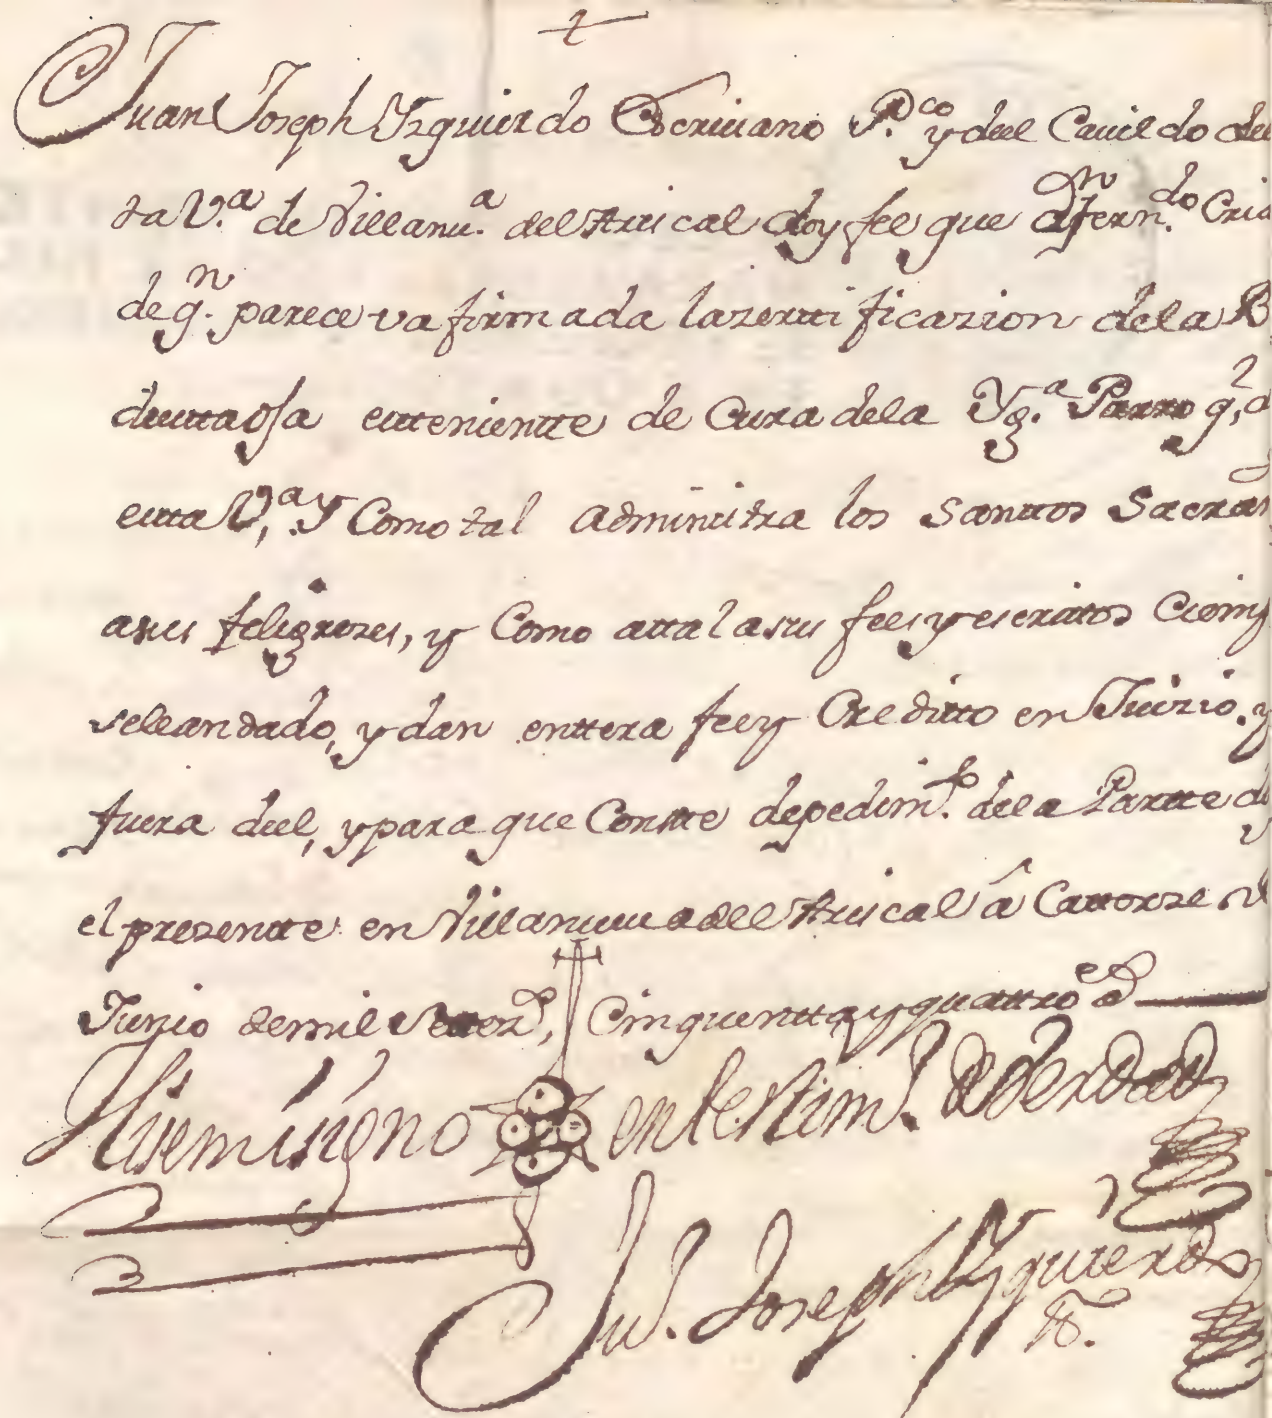 Juan Joseph Yzquierdo Escriuano P.co y del Cauildo de
ta V.a de Villanu.a del Ariscal doy fee que Dn fern.do Cria
de qn. parece va firmada la zerttificazion de la B
de vtta osa es tteniente de Cura de la Yg.a Parroq.l d
estta V.a Y Como tal administra los Santtos Sacram
a sus feligrezes, y Como a ttal a sus fees y escrittos Ciemp
se le an dado, y dan enttera fee y Creditto en Juizio, y
fuera del, y para que Constte de pedim.to de la Partte d
el prezentte en Villanueua del Ariscal â Cattorze d
Junio de mil settez.os Cinquentta y quattro a.s
Hise mi signo en testim.o de Verdad
Ju.o Joseph Yzquierdo